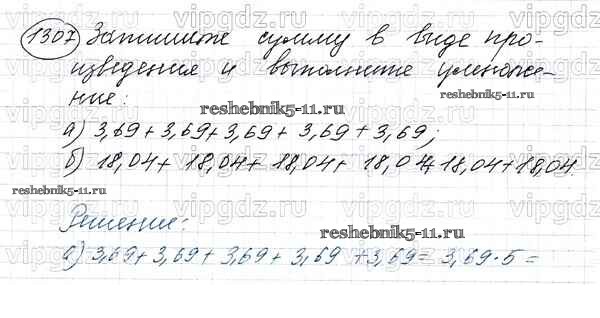 1307 Запишите сумму в виде про-
изведения и выполните умноже-
ние:
reshebnik5-11.ru
а) 3,69 + 3,69 + 3,69 + 3,69 + 3,69;
б) 18,04 + 18,04 + 18,04 + 18,04 + 18,04 + 18,04.
reshebnik5-11.ru
Решение:
reshebnik5-11.ru
а) 3,69 + 3,69 + 3,69 + 3,69 + 3,69 = 3,69 · 5 =
vipgdz.ru vipgdz.ru vipgdz.ru vipgdz.ru